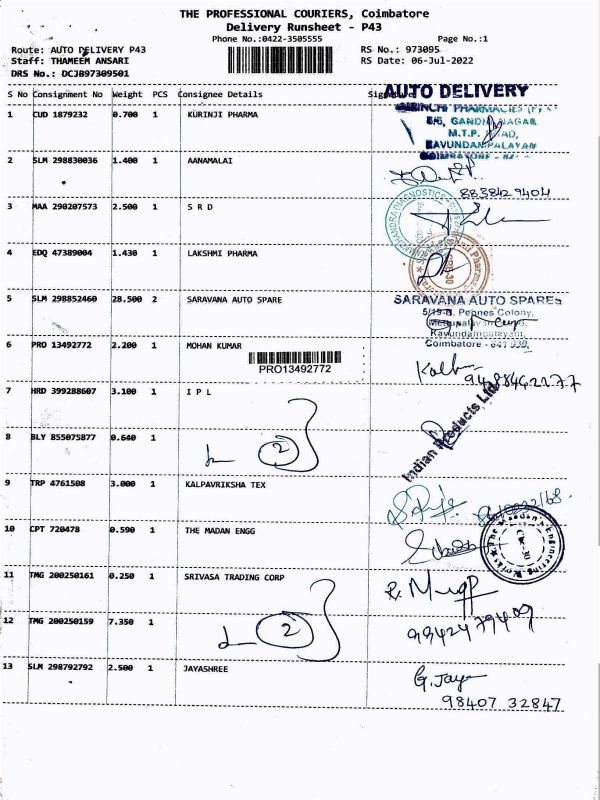 THE PROFESSIONAL COURIERS, Coimbatore
Delivery Runsheet - P43
Phone No.:0422-3505555 Page No.:1
Route: AUTO DELIVERY P43 RS No.: 973095
Staff: THAMEEM ANSARI RS Date: 06-Jul-2022
DRS No.: DCJB97309501
AUTO DELIVERY
S No Consignment No Weight PCS Consignee Details
1 CUD 1879232 0.700 1 KURINJI PHARMA
GANDHI NAGAR
M.T.P. ROAD,
KAVUNDAMPALAYAM
2 SLM 298830036 1.400 1 AANAMALAI
8838429404
3 MAA 290207573 2.500 1 S R D
4 EDQ 47389004 1.430 1 LAKSHMI PHARMA
5 SLM 298852460 28.500 2 SARAVANA AUTO SPARE
SARAVANA AUTO SPARES
5/19-B, Pepnes Colony,
Coimbatore - 641 030.
6 PRO 13492772 2.200 1 MOHAN KUMAR
PRO13492772
7 HRD 399288607 3.100 1 I P L
Indian Products Ltd
8 BLY 855075877 0.640 1
2
9 TRP 4761508 3.000 1 KALPAVRIKSHA TEX
10 CPT 720478 0.590 1 THE MADAN ENGG
11 TMG 200250161 0.250 1 SRIVASA TRADING CORP
12 TMG 200250159 7.350 1
2
13 SLM 298792792 2.500 1 JAYASHREE
G. Jaya
98407 32847